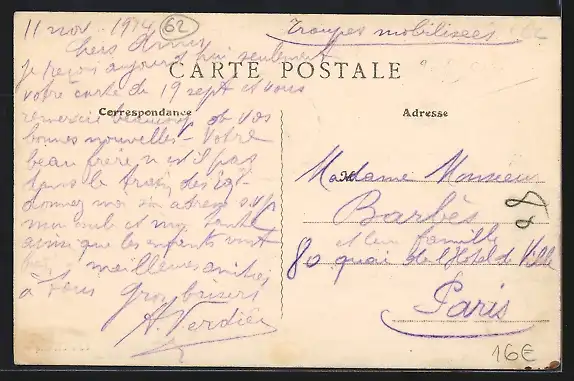 11 nov. 1914
62
Troupes mobilisées
Chers Amis
je reçois aujourd'hui seulement
CARTE POSTALE
votre carte du 19 sept et vous
Correspondance
Adresse
remercie beaucoup de vos
bonnes nouvelles - Votre
beau frère n'est il pas
dans le train des
donnez moi son adresse s.v.p.
mon oncle et ma tante
ainsi que les enfants vont
meilleures amitiés
à tous gros baisers
A. Verdier
M
Madame Monsieur
Barbès
et leur famille
80 quai de l'Hotel de Ville
Paris
16€